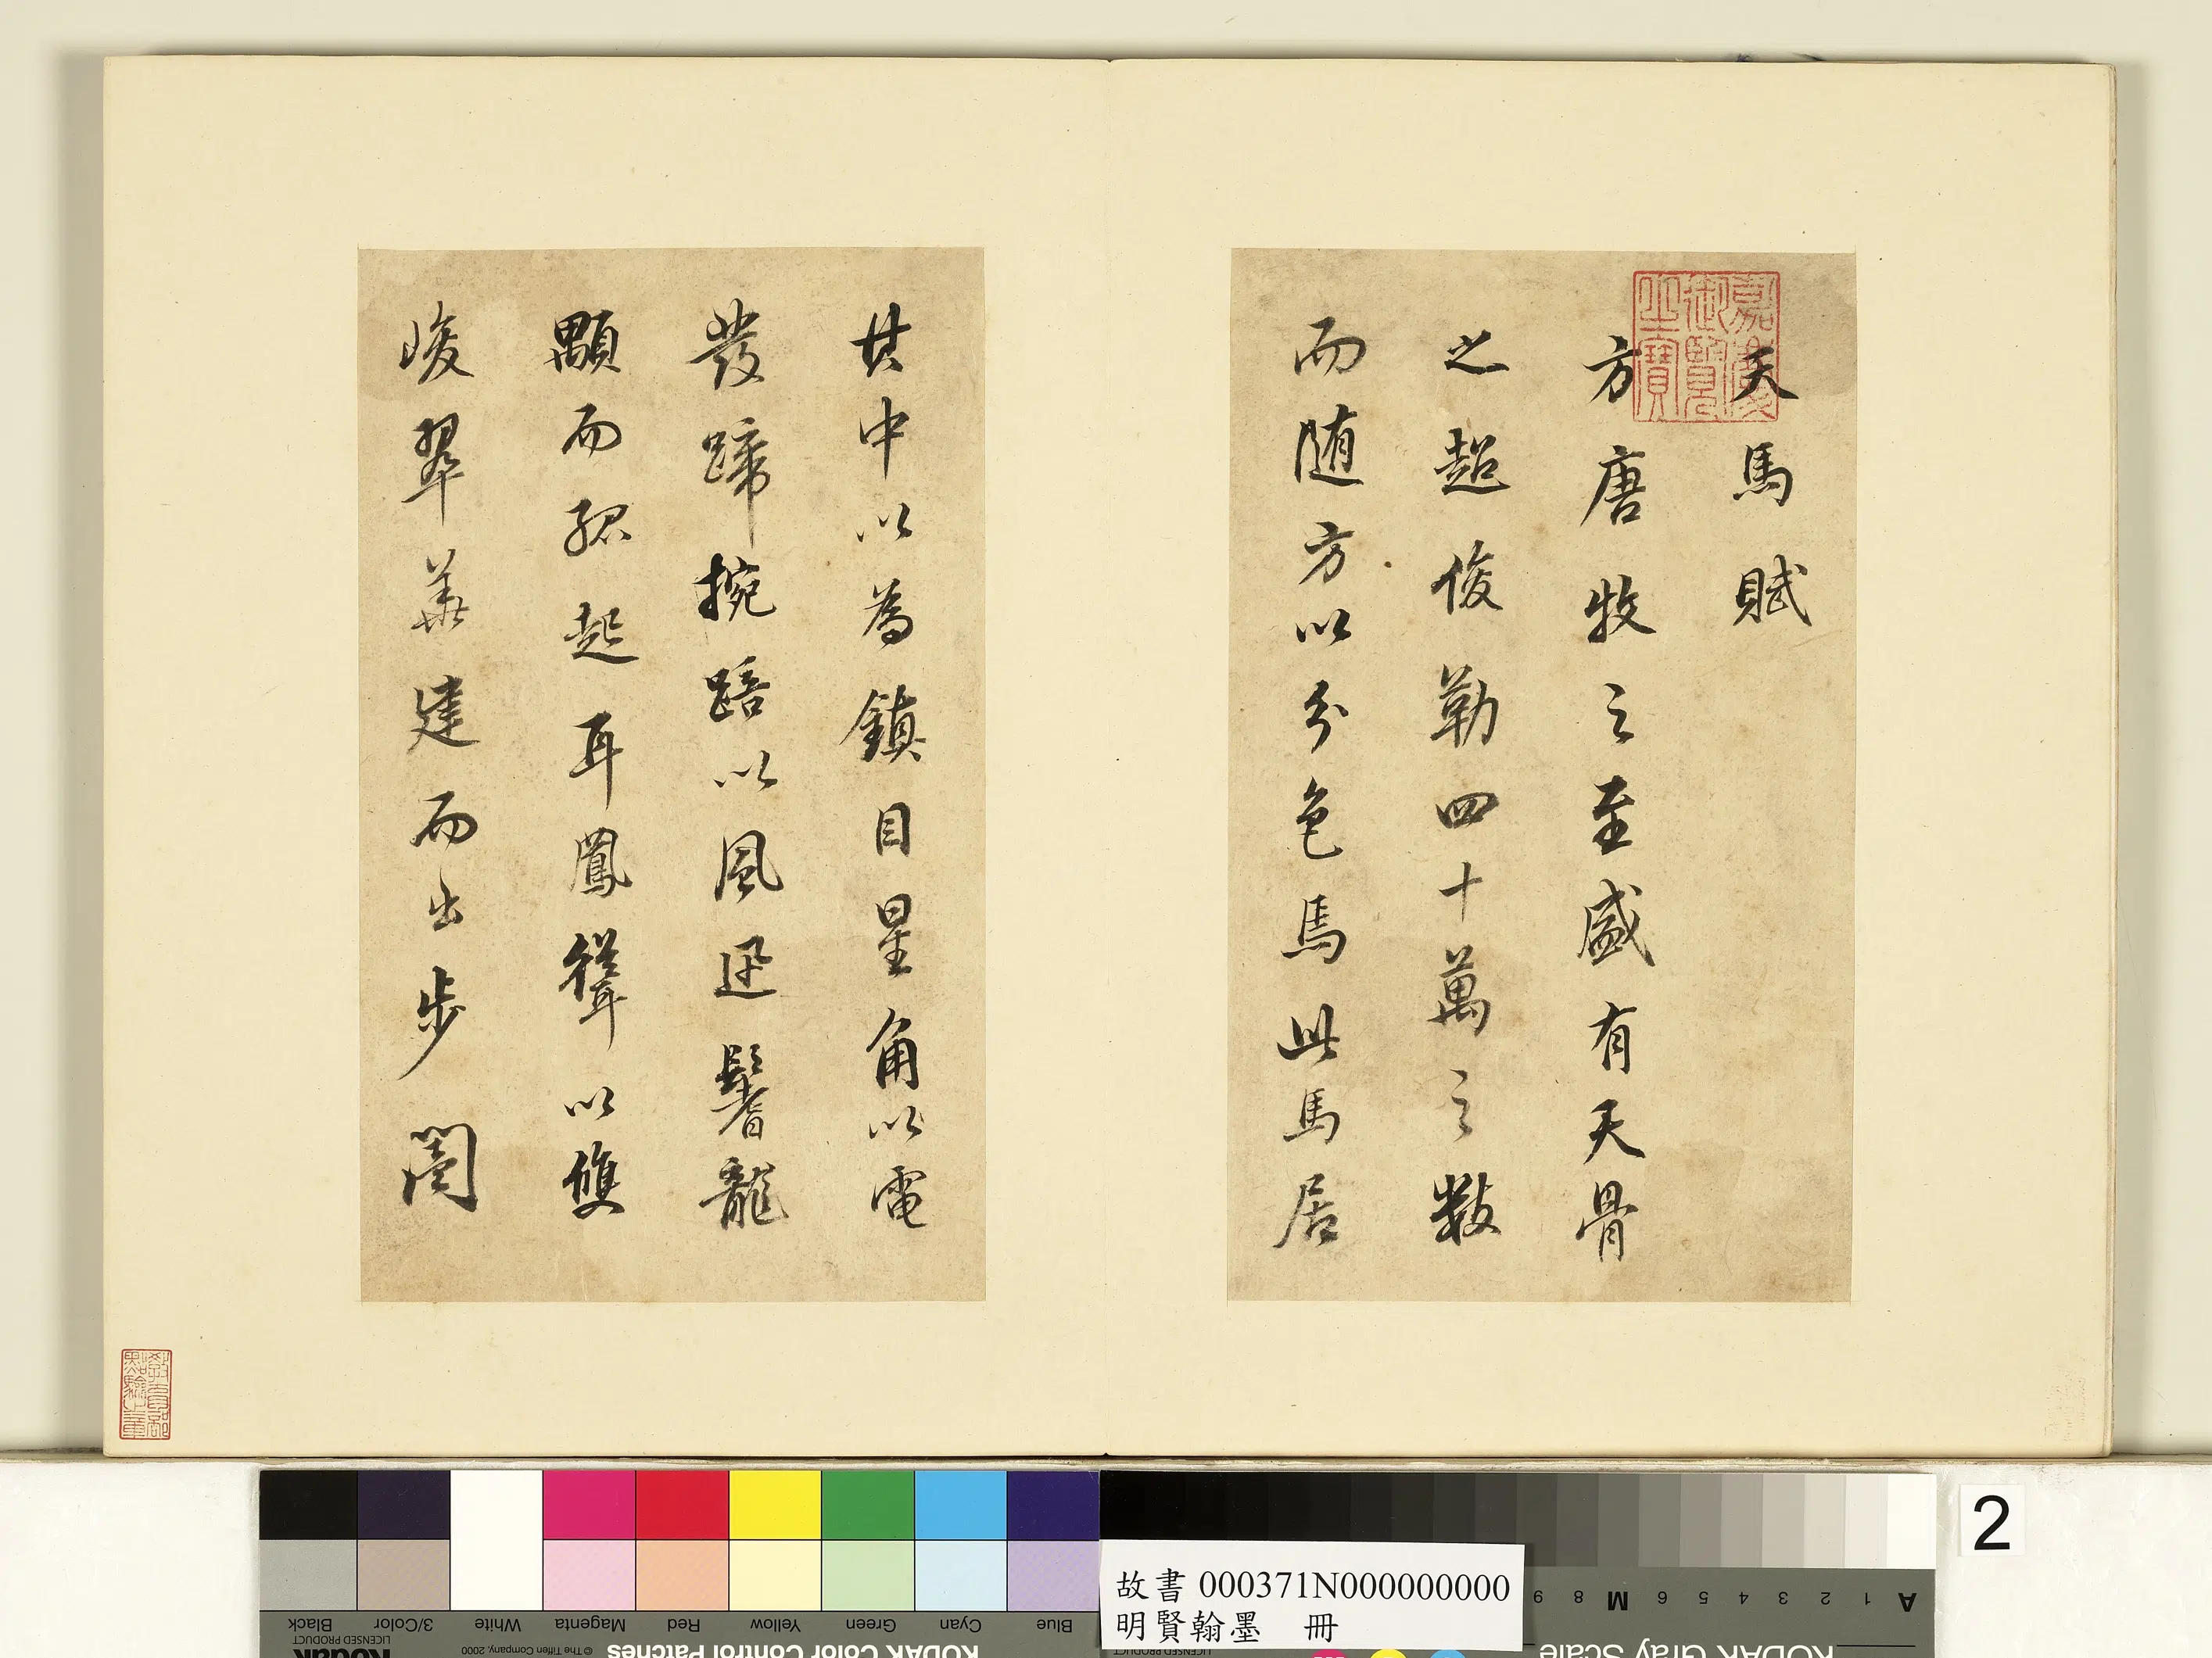 天馬賦
方唐牧之至盛有天骨
之超俊勒四十萬之數
而随方以分色馬此馬居
其中以為鎮目星角以電
發蹄捥踣以風迅鬐龍
顒而孤起耳鳳聳以雙
峻翠華建而出步閶
嘉慶御覽之寶
教育部點驗之章
2
故書 000371N000000000
明賢翰墨 冊
Blue Cyan Green Yellow Red Magenta White 3/Color Black
KODAK Color Control Patches
© The Tiffen Company, 2000
Kodak
LICENSED PRODUCT
A 1 2 3 4 5 6 M 8 9
KODAK Gray Scale